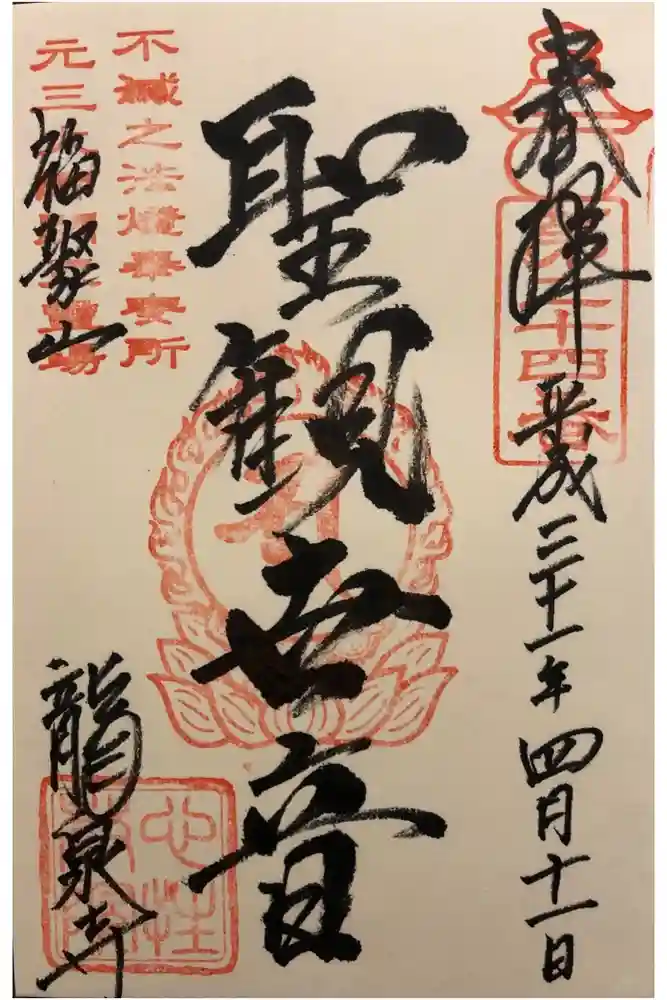 奉拝
平成三十一年四月十一日
聖観世音
不滅之法燈奉安所
元三
福聚山
龍泉寺
十四番
心性